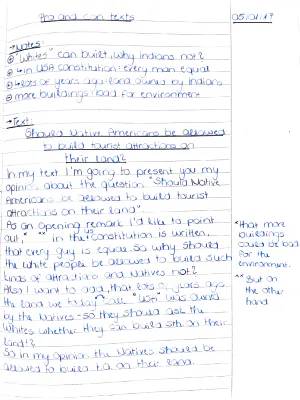 Pro and con texts
05/01/19
→Notes
⊕ "Whites" can built, why Indians not?
⊕ ↳in USA constitution: every man equal
⊕ ↳lots of years ago: land owned by Indians
⊖ more buildings: bad for environment
→Text:
Should Native Americans be allowed
to build tourist attractions on
their land?
In my text I'm going to present you my
opinion about the question "Should Native
Americans be allowed to build tourist
attractions on their land".
As an opening remark I'd like to point
out,* ** in the constitution is written,
that every guy is equal. So why should
the white people be allowed to build such
kinds of attractions and Natives not?
Also I want to add, that lots of years ago
the land we today call "USA" was owned
by the Natives - so they should ask the
Whites whether they can build sth on their
land!?
So in my opinion the Natives should be
allowed to build t.a. on their land.
*that more
buildings
could be bad
for the
environment.
** But on
the other
hand